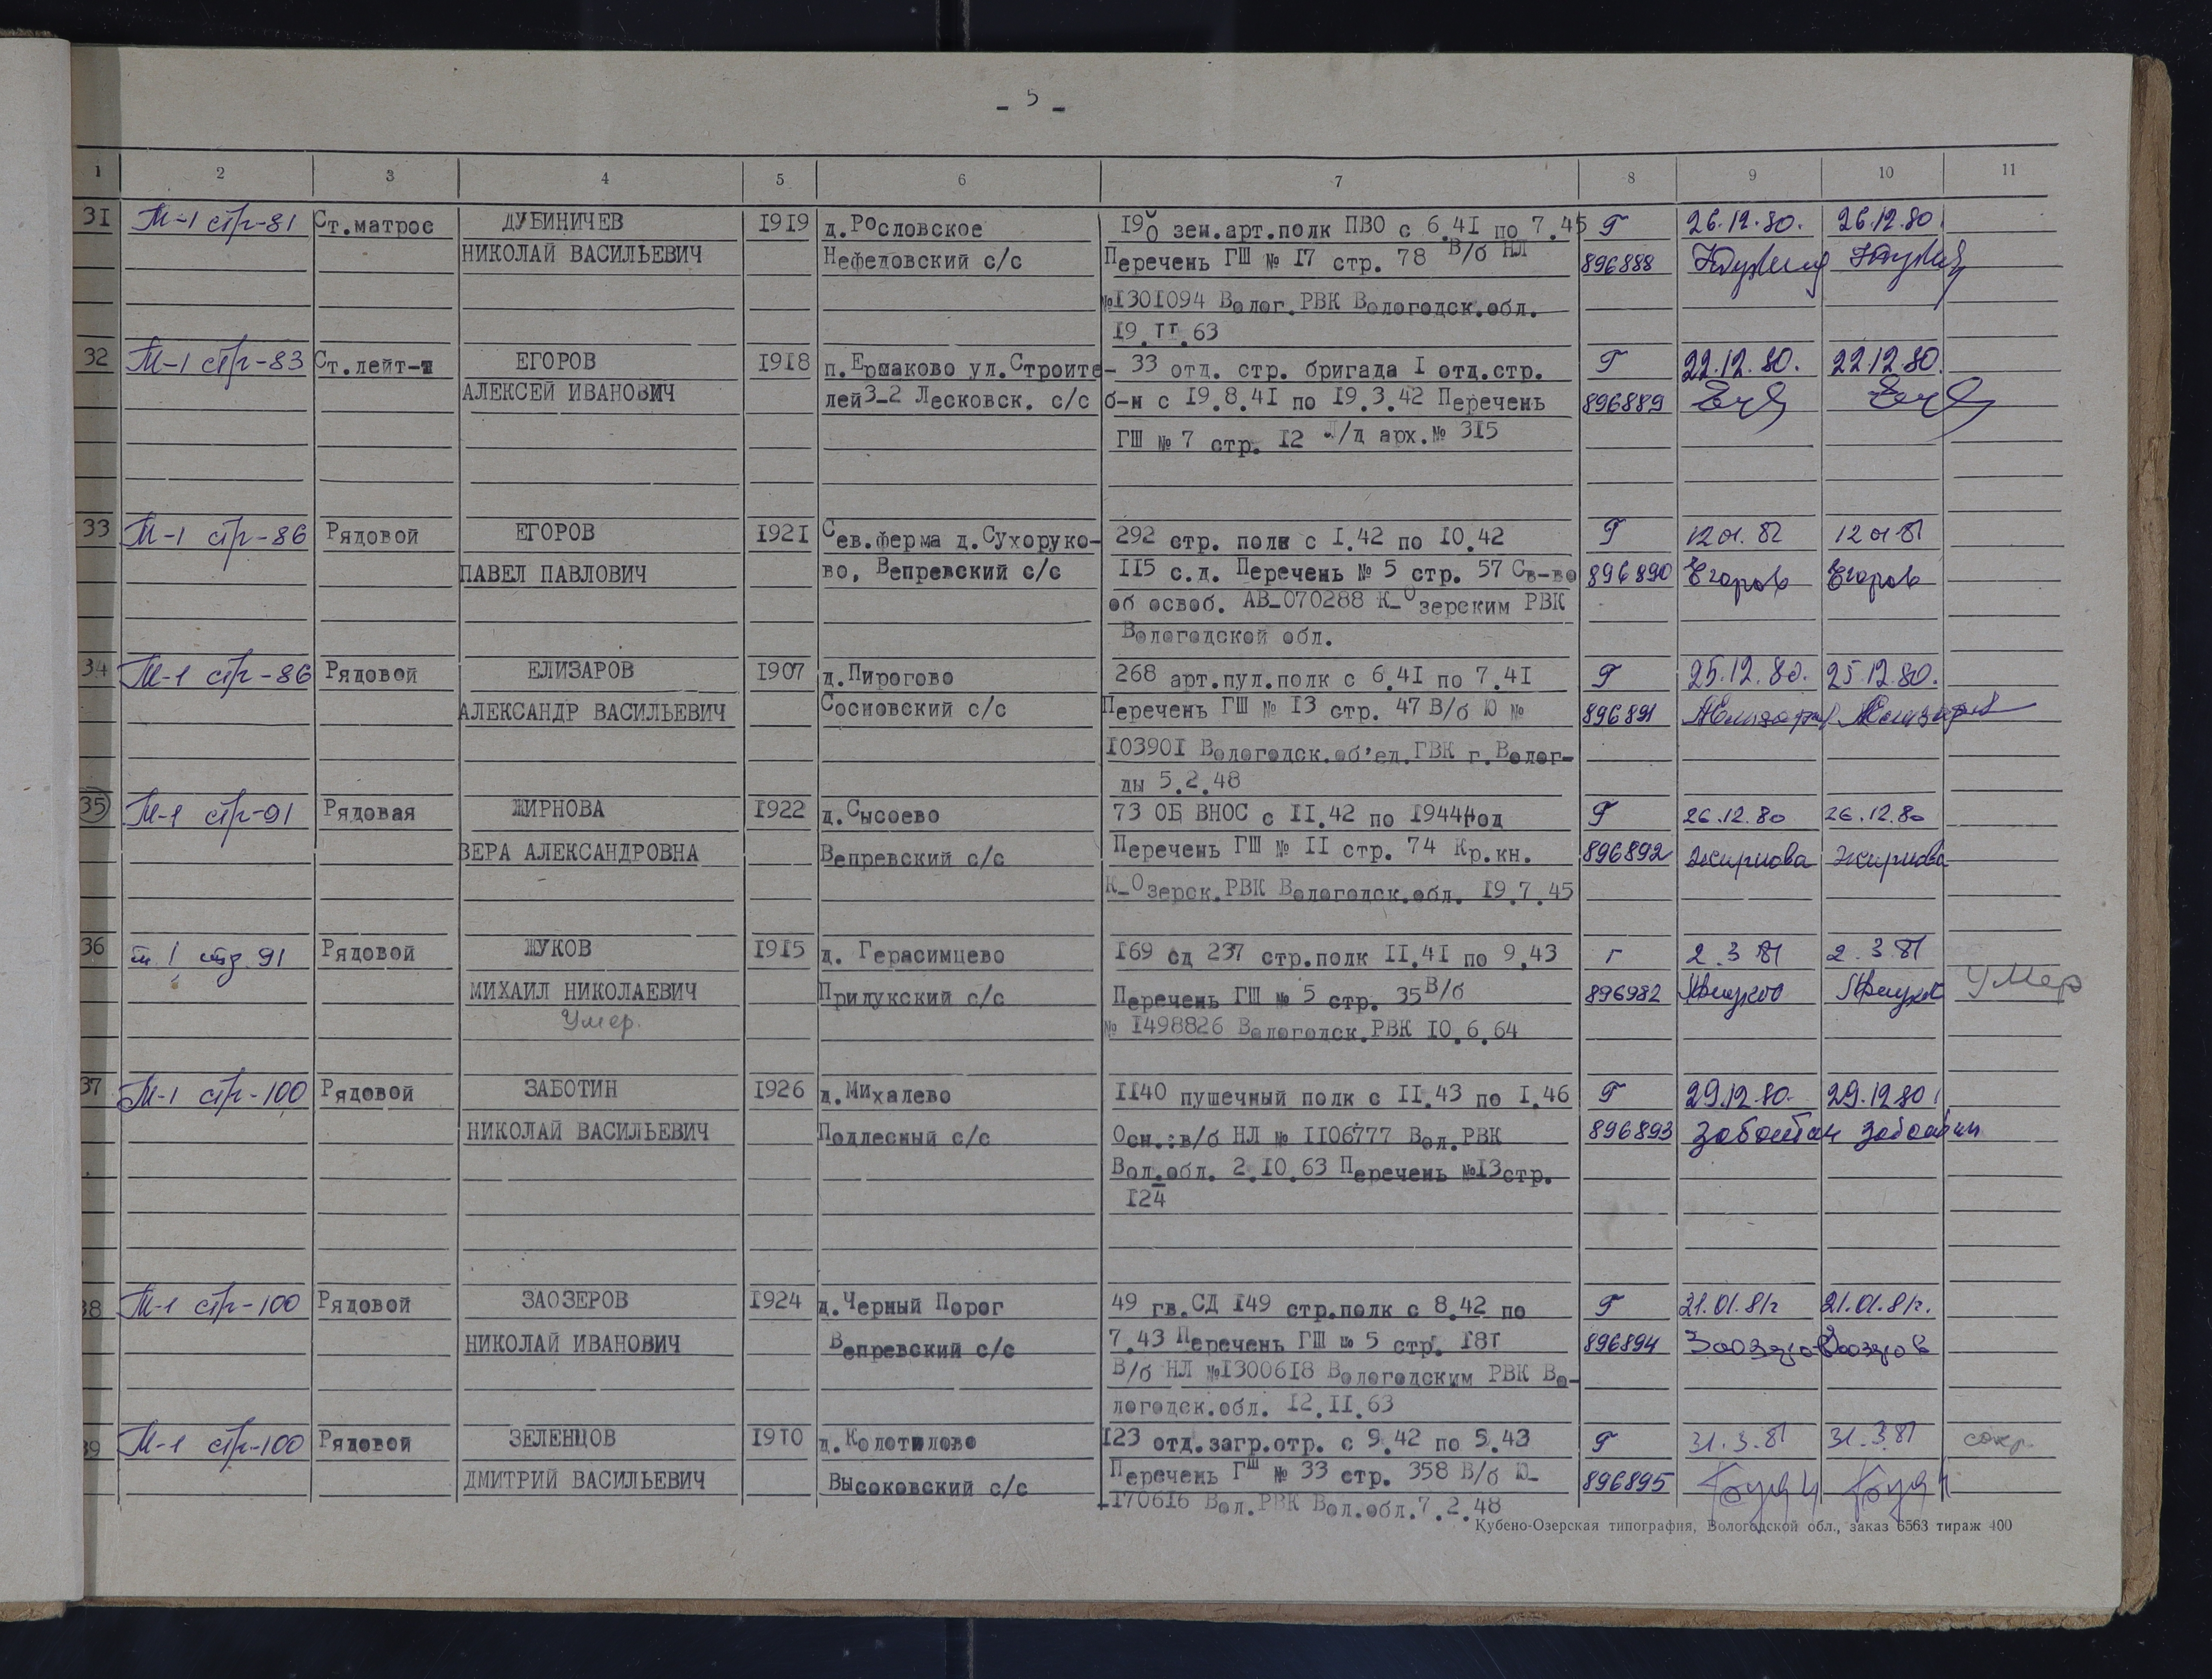 - 5 -
1 2 3 4 5 6 7 8 9 10 11
31 М-1 стр-81 Ст.матрос ДУБИНИЧЕВ 1919 д.Рословское 190 зен.арт.полк ПВО с 6.41 по 7.45 Г 26.12.80. 26.12.80.
НИКОЛАЙ ВАСИЛЬЕВИЧ Нефедовский с/с Перечень ГШ № 17 стр. 78 В/б НЛ 896888
№1301094 Волог.РВК Вологодск.обл.
19.11.63
32 М-1 стр-83 Ст.лейт-т ЕГОРОВ 1918 п.Ермаково ул.Строите- 33 отд. стр. бригада 1 отд.стр. Г 22.12.80. 22.12.80.
АЛЕКСЕЙ ИВАНОВИЧ лей 3-2 Лесковск. с/с б-н с 19.8.41 по 19.3.42 Перечень 896889
ГШ № 7 стр. 12 Л/д арх.№ 315
33 М-1 стр-86 Рядовой ЕГОРОВ 1921 Сев.ферма д.Сухоруко- 292 стр. полк с 1.42 по 10.42 Г 12 01. 81 12 01 81
ПАВЕЛ ПАВЛОВИЧ во, Вепревский с/с 115 с.д. Перечень № 5 стр. 57 Св-во 896890 Егоров Егоров
об освоб. АВ-070288 К-Озерским РВК
Вологодской обл.
34 М-1 стр-86 Рядовой ЕЛИЗАРОВ 1907 д.Пирогово 268 арт.пул.полк с 6.41 по 7.41 Г 25.12.80. 25.12.80.
АЛЕКСАНДР ВАСИЛЬЕВИЧ Сосновский с/с Перечень ГШ № 13 стр. 47 В/б Ю № 896891 АЕлизаров АЕлизаров
103901 Вологодск.об'ед.ГВК г.Волог-
ды 5.2.48
35 М-1 стр-91 Рядовая ЖИРНОВА 1922 д.Сысоево 73 ОБ ВНОС с 11.42 по 1944год Г 26.12.80 26.12.80
ВЕРА АЛЕКСАНДРОВНА Вепревский с/с Перечень ГШ № 11 стр. 74 Кр.кн. 896892 Жирнова Жирнова
К-Озерск.РВК Вологодск.обл. 19.7.45
36 т.1 стр.91 Рядовой ЖУКОВ 1915 д. Герасимцево 169 сд 237 стр.полк 11.41 по 9.43 г 2.3 81 2.3.81
МИХАИЛ НИКОЛАЕВИЧ Прилукский с/с Перечень ГШ № 5 стр. 35 В/б 896982 МЖуков МЖуков Умер
Умер. № 1498826 Вологодск.РВК 10.6.64
37 М-1 стр-100 Рядовой ЗАБОТИН 1926 д.Михалево 1140 пушечный полк с 11.43 по 1.46 Г 29.12.80. 29.12.80
НИКОЛАЙ ВАСИЛЬЕВИЧ Подлесный с/с Осн.:в/б НЛ № 1106777 Вол.РВК 896893 Заботин Заботин
Вол.обл. 2.10.63 Перечень №13стр.
124
38 М-1 стр-100 Рядовой ЗАОЗЕРОВ 1924 д.Черный Порог 49 гв.СД 149 стр.полк с 8.42 по Г 21.01.81г 21.01.81г.
НИКОЛАЙ ИВАНОВИЧ Вепревский с/с 7.43 Перечень ГШ № 5 стр. 181 896894
В/б НЛ №1300618 Вологодским РВК Во-
логодск.обл. 12.11.63
39 М-1 стр-100 Рядовой ЗЕЛЕНЦОВ 1910 д.Колотилово 123 отд.загр.отр. с 9.42 по 5.43 Г 31.3.81 31.3.81
ДМИТРИЙ ВАСИЛЬЕВИЧ Высоковский с/с Перечень ГШ № 33 стр. 358 В/б Ю- 896895
170616 Вол.РВК Вол.обл.7.2.48
Кубено-Озерская типография, Вологодской обл., заказ 6563 тираж 400